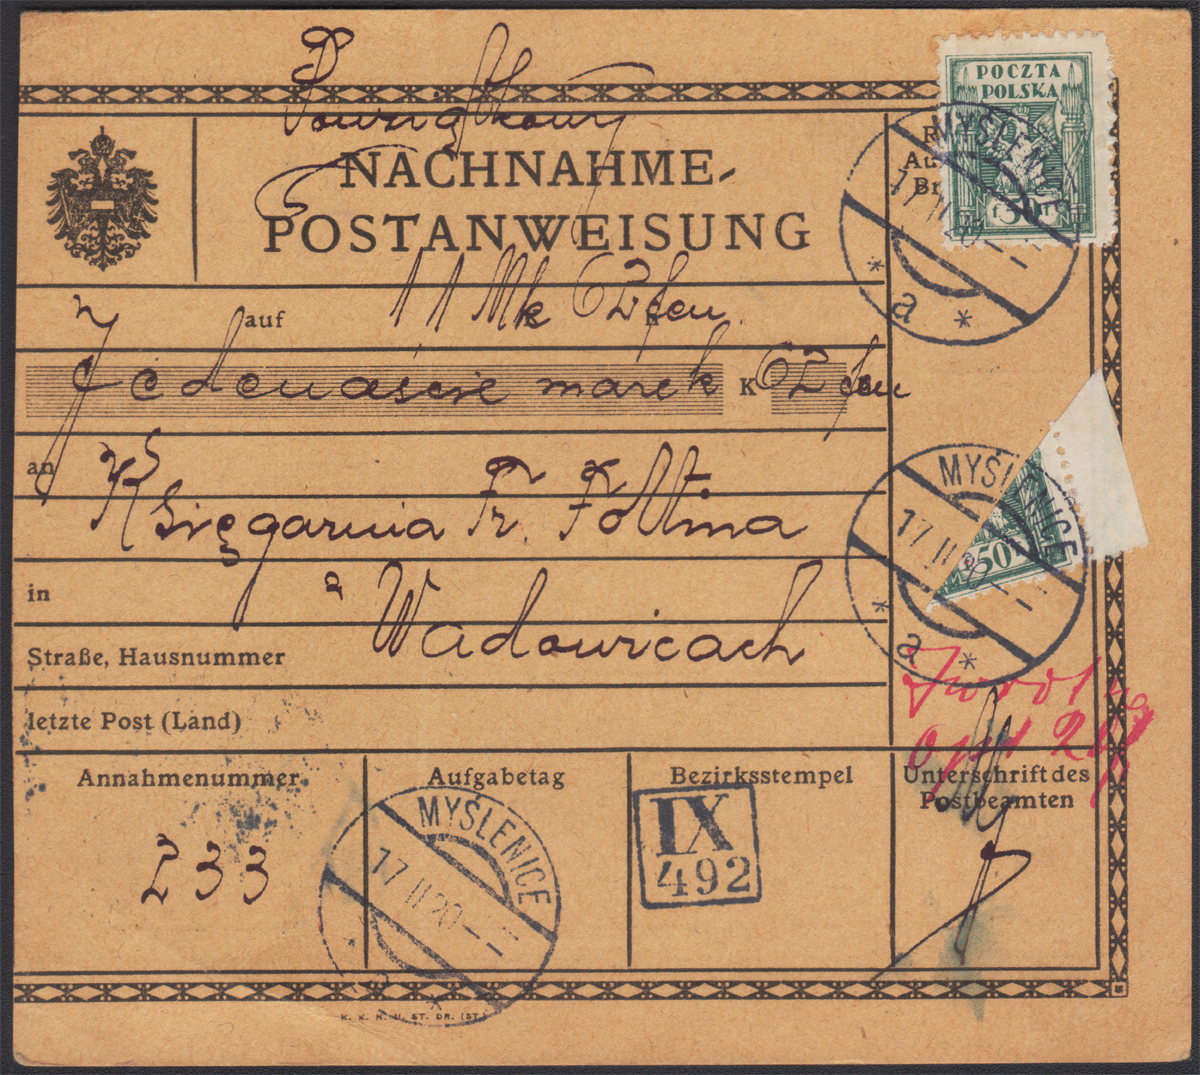 POCZTA
POLSKA
50
MYŚLENICE
17 II 20
a
NACHNAHME-
POSTANWEISUNG
auf 11 Mk 62 fen
Jedenaście marek K 62 fen
an Księgarnia Fr. Foltina
in w Wadowicach
Straße, Hausnummer
letzte Post (Land)
MYŚLENICE
17 II 20
a
50
Annahmenummer
Aufgabetag
Bezirksstempel
Unterschrift des
Postbeamten
233
MYŚLENICE
17 II 20
IX
492
K. K. H. U. ST. DR. (ST.)